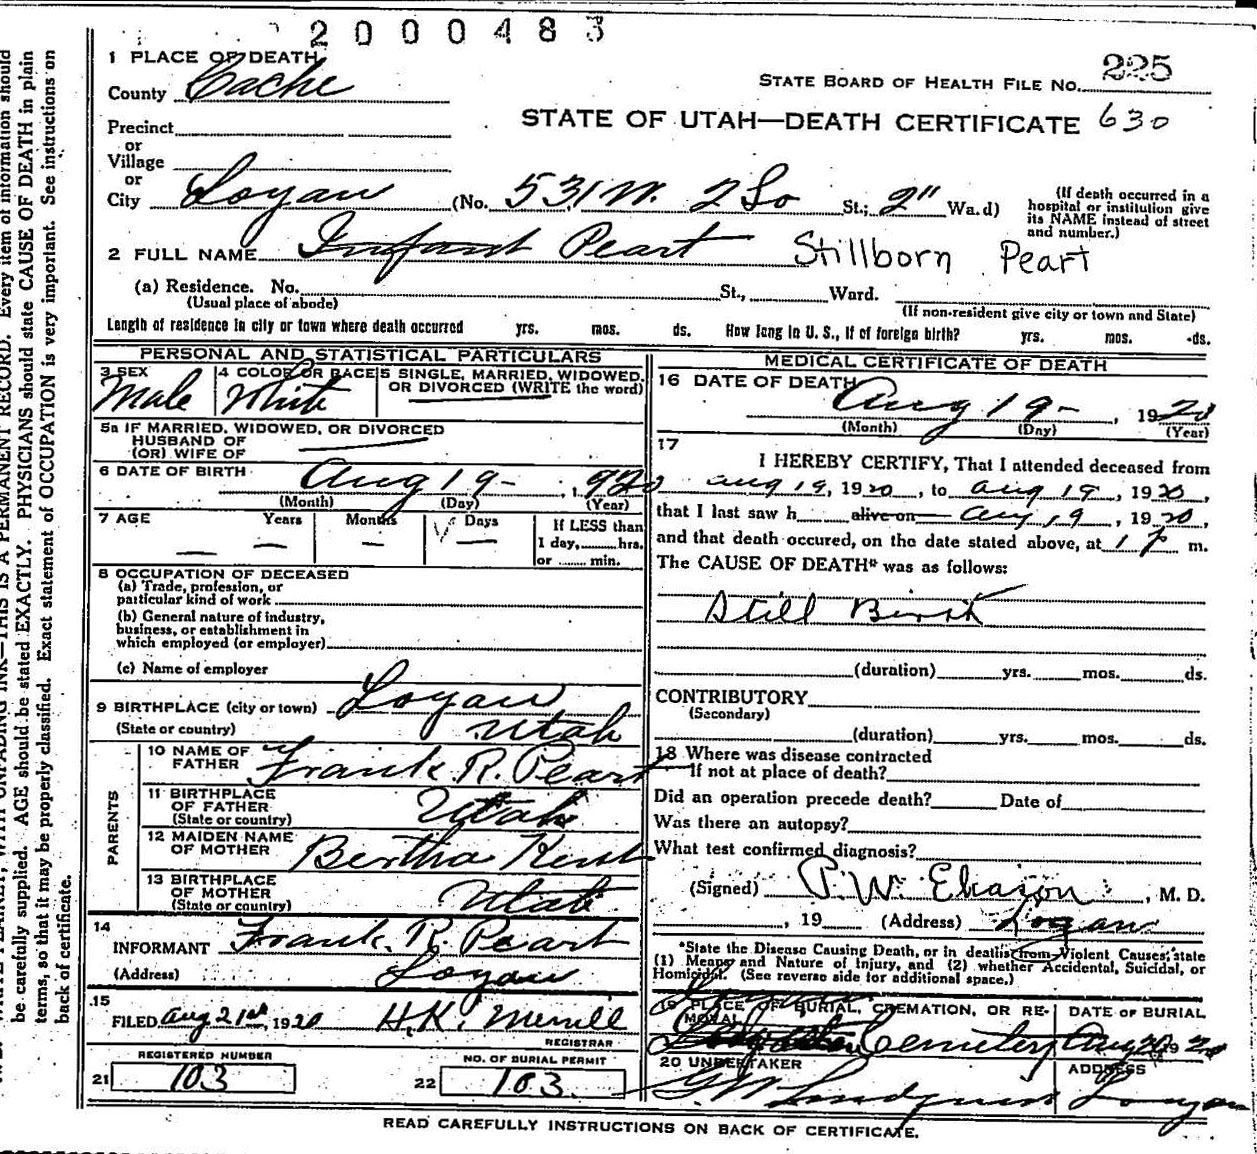 2000483
1 PLACE OF DEATH
County Cache
STATE BOARD OF HEALTH FILE No. 225
STATE OF UTAH—DEATH CERTIFICATE 630
Precinct
or
Village
or
City Logan (No. 531 W. 2 So St.; 2" Wa.d)
(If death occurred in a
hospital or institution give
its NAME instead of street
and number.)
2 FULL NAME Infant Peart Stillborn Peart
(a) Residence. No. St., Ward.
(Usual place of abode) (If non-resident give city or town and State)
Length of residence in city or town where death occurred yrs. mos. ds. How long in U. S., if of foreign birth? yrs. mos. ds.
PERSONAL AND STATISTICAL PARTICULARS
3 SEX 4 COLOR OR RACE 5 SINGLE, MARRIED, WIDOWED,
OR DIVORCED (WRITE the word)
Male White
5a IF MARRIED, WIDOWED, OR DIVORCED
HUSBAND OF
(OR) WIFE OF
6 DATE OF BIRTH Aug 19- , 1920
(Month) (Day) (Year)
7 AGE Years Months Days If LESS than
1 day, hrs.
or min.
8 OCCUPATION OF DECEASED
(a) Trade, profession, or
particular kind of work
(b) General nature of industry,
business, or establishment in
which employed (or employer)
(c) Name of employer
9 BIRTHPLACE (city or town) Logan
(State or country) Utah
PARENTS
10 NAME OF
FATHER Frank R. Peart
11 BIRTHPLACE
OF FATHER
(State or country) Utah
12 MAIDEN NAME
OF MOTHER Bertha Kent
13 BIRTHPLACE
OF MOTHER
(State or country) Utah
14
INFORMANT Frank. R. Peart
(Address) Logan
15
FILED Aug 21st, 1920 H. K. Merrill
REGISTRAR
REGISTERED NUMBER NO. OF BURIAL PERMIT
21 103 22 103
MEDICAL CERTIFICATE OF DEATH
16 DATE OF DEATH
Aug 19- , 1920
(Month) (Day) (Year)
17
I HEREBY CERTIFY, That I attended deceased from
aug 19, 1920, to aug 19, 1920,
that I last saw h alive on aug 19, 1920,
and that death occured, on the date stated above, at 1 p m.
The CAUSE OF DEATH* was as follows:
Still Birth
(duration) yrs. mos. ds.
CONTRIBUTORY
(Secondary)
(duration) yrs. mos. ds.
18 Where was disease contracted
If not at place of death?
Did an operation precede death? Date of
Was there an autopsy?
What test confirmed diagnosis?
(Signed) P. W. Eliason, M. D.
, 19 (Address) Logan
*State the Disease Causing Death, or in deaths from Violent Causes, state
(1) Means and Nature of Injury, and (2) whether Accidental, Suicidal, or
Homicidal. (See reverse side for additional space.)
19 PLACE OF BURIAL, CREMATION, OR RE-
MOVAL DATE OF BURIAL
Cemetery Aug 20 1920
20 UNDERTAKER ADDRESS
G. W. Lindquist Logan
READ CAREFULLY INSTRUCTIONS ON BACK OF CERTIFICATE.
THIS IS A PERMANENT RECORD. Every item of information should
be carefully supplied. AGE should be stated EXACTLY. PHYSICIANS should state CAUSE OF DEATH in plain
terms, so that it may be properly classified. Exact statement of OCCUPATION is very important. See instructions on
back of certificate.